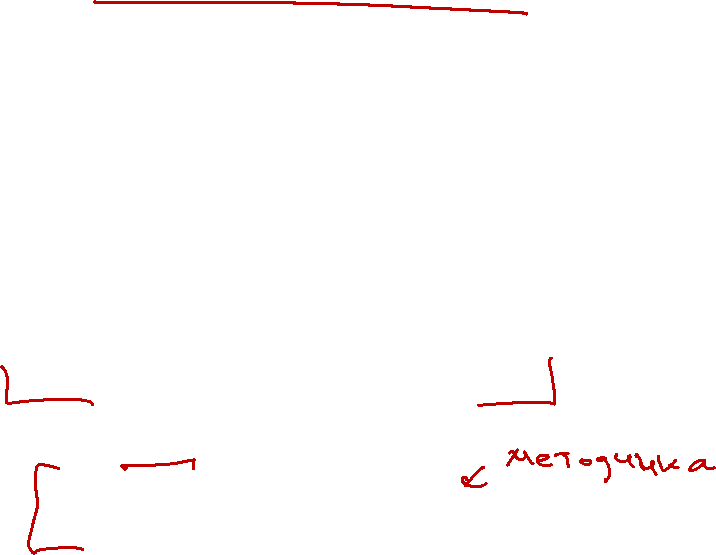 методичка